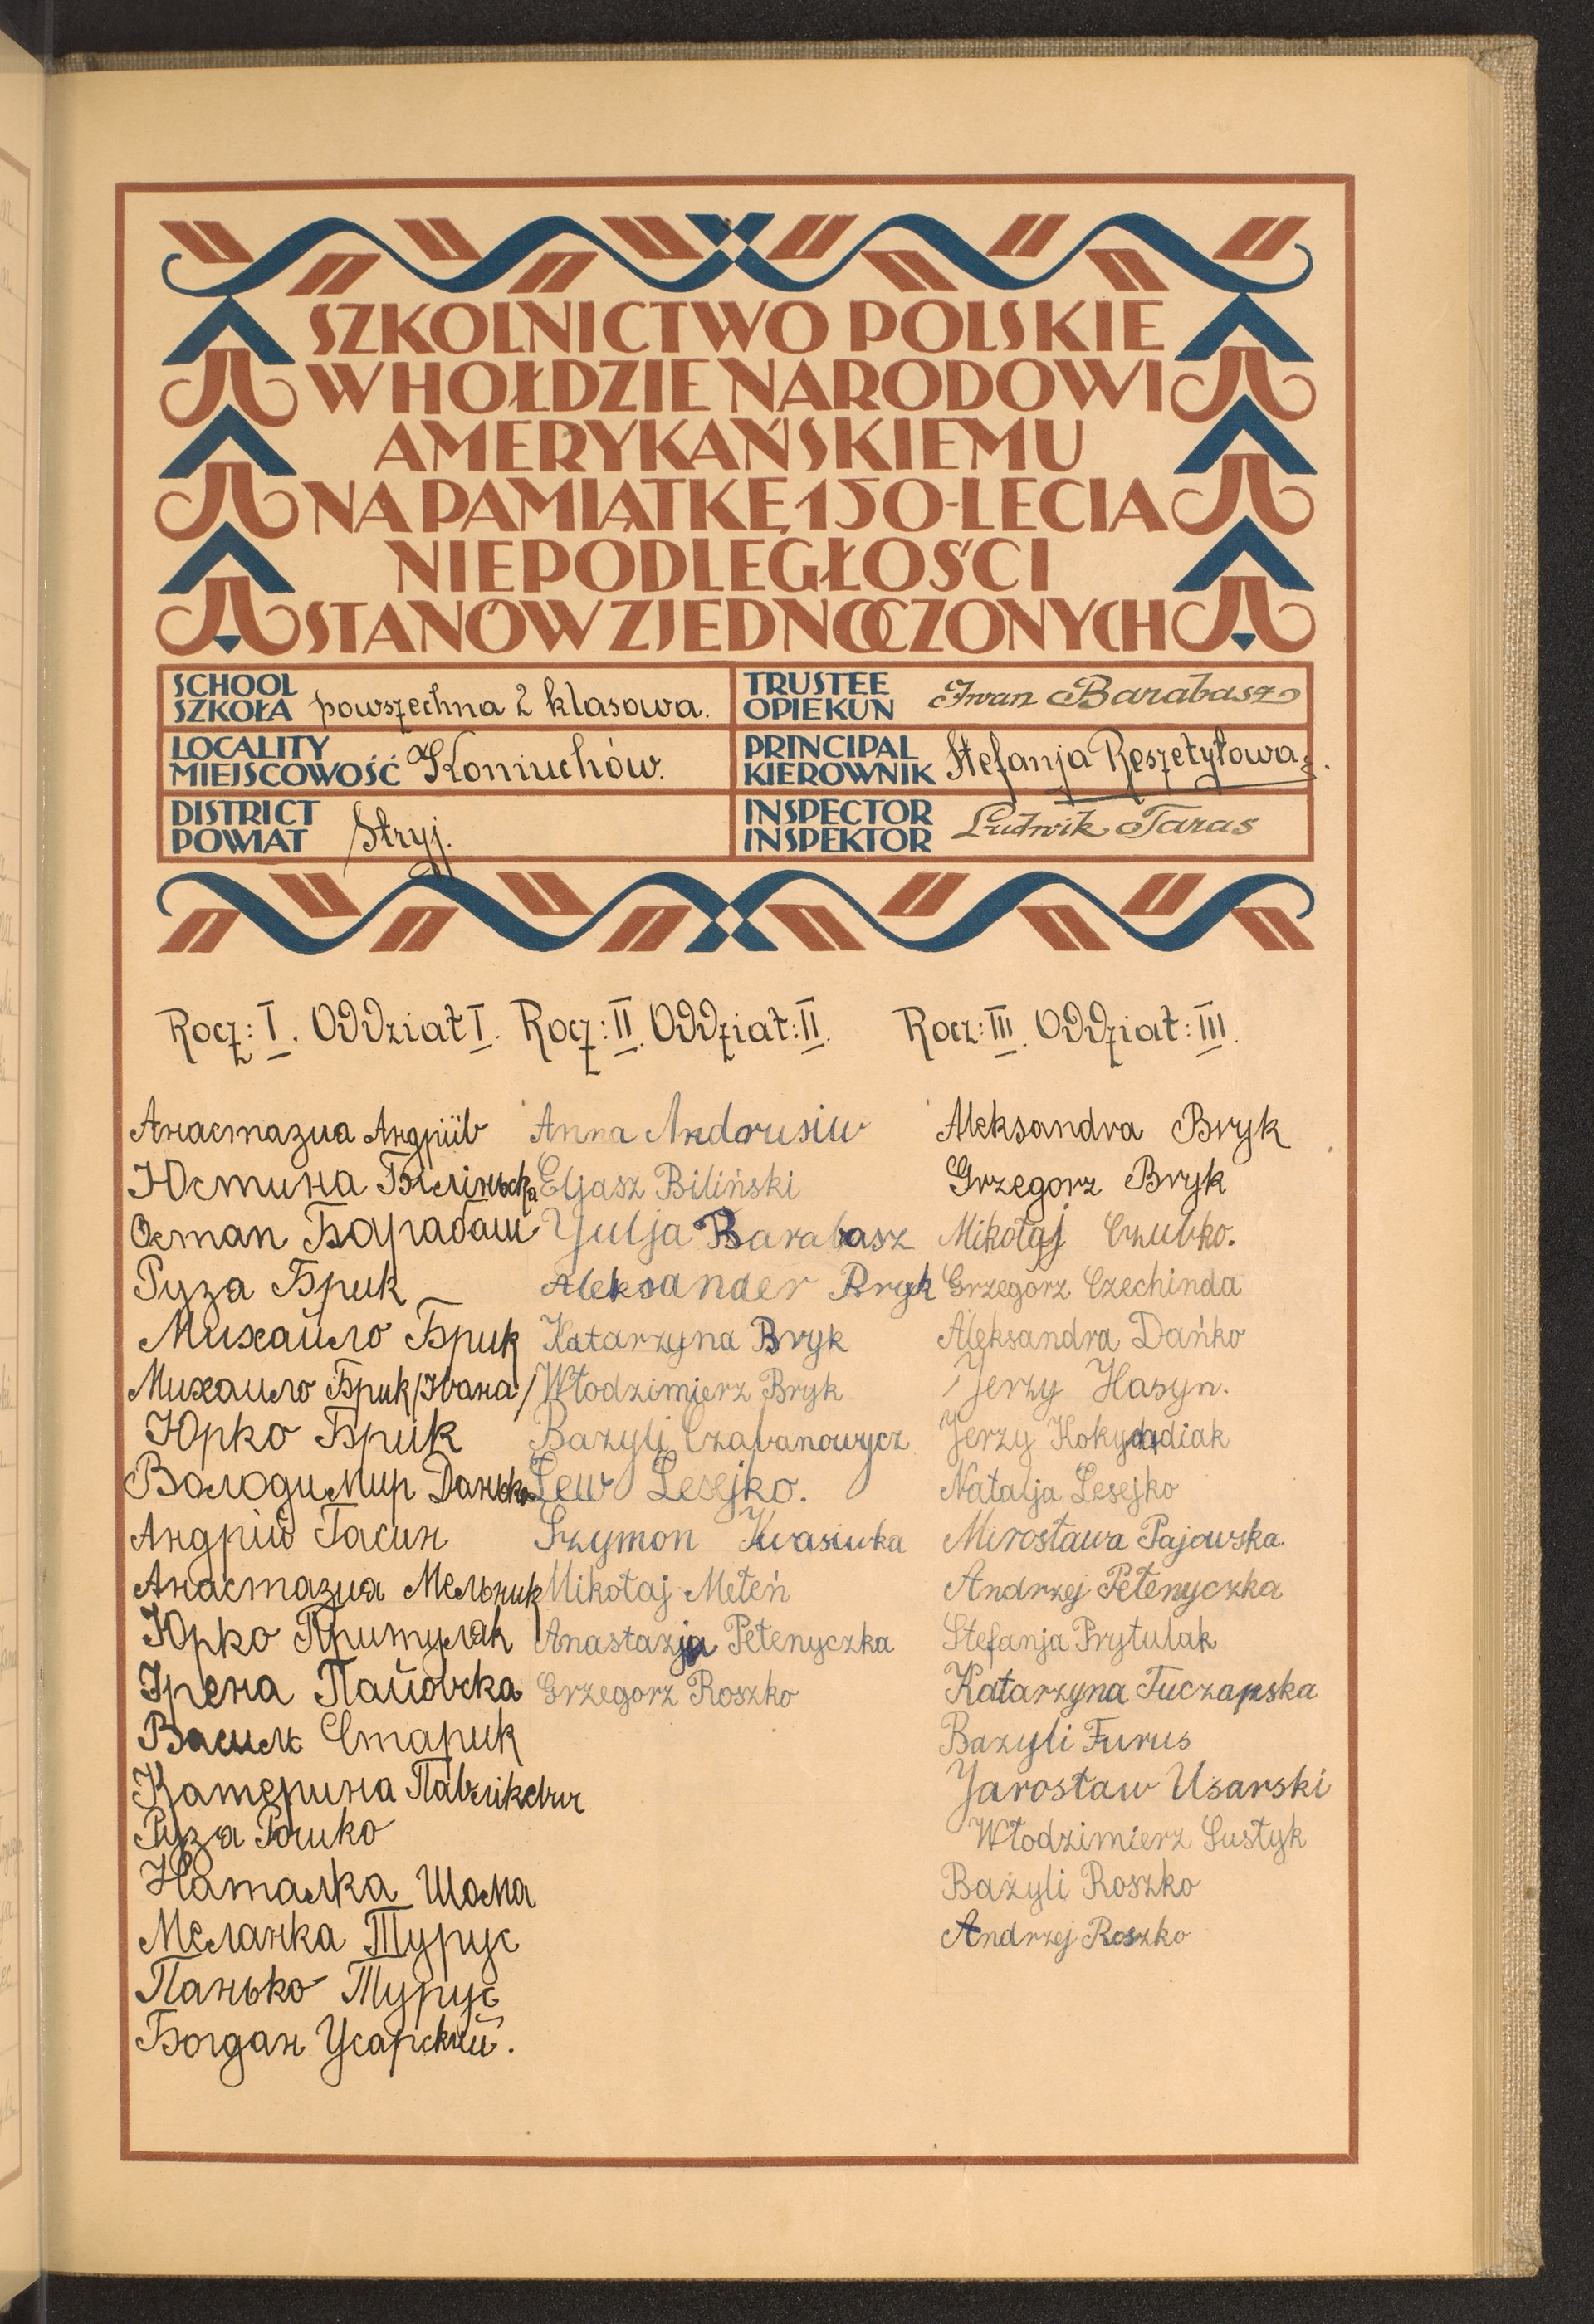 SZKOLNICTWO POLSKIE
W HOŁDZIE NARODOWI
AMERYKAŃSKIEMU
NA PAMIĄTKĘ 150-LECIA
NIEPODLEGŁOŚCI
STANÓW ZJEDNOCZONYCH
SCHOOL
SZKOŁA powszechna 2 klasowa.
TRUSTEE
OPIEKUN Iwan Barabasz
LOCALITY
MIEJSCOWOŚĆ Koniuchów.
PRINCIPAL
KIEROWNIK Stefanja Reszetyłowa.
DISTRICT
POWIAT Stryj.
INSPECTOR
INSPEKTOR Ludwik Taras
Rocz: I. Oddział I.
Анастазиа Андріїв
Юстина Біліньска
Остап Барабаш
Рузя Брик
Михайло Брик
Михайло Брик /Івана/
Юрко Брик
Володимир Данько
Андрій Гасин
Анастазиа Мельник
Юрко Притуляк
Ірена Пайовска
Василь Старик
Катерина Павлікевич
Рузя Рошко
Наталка Шома
Меланка Турус
Панько Турус
Богдан Усарский.
Rocz: II. Oddział: II.
Anna Andrusiw
Eljasz Biliński
Yulja Barabasz
Aleksander Bryk
Katarzyna Bryk
Włodzimierz Bryk
Bazyli Czabanowycz
Lew Lesejko.
Szymon Kwasiwka
Mikołaj Meteń
Anastazja Petenyczka
Grzegorz Roszko
Rocz: III. Oddział: III.
Aleksandra Bryk
Grzegorz Bryk
Mikołaj Czubko.
Grzegorz Czechinda
Aleksandra Dańko
Jerzy Hasyn.
Jerzy
Natalja Lesejko
Mirosława Pajowska.
Andrzej Petenyczka
Stefanja Prytulak
Katarzyna Tuczapska
Bazyli Turus
Yarosław Usarski
Włodzimierz Sustyk
Bazyli Roszko
Andrzej Roszko